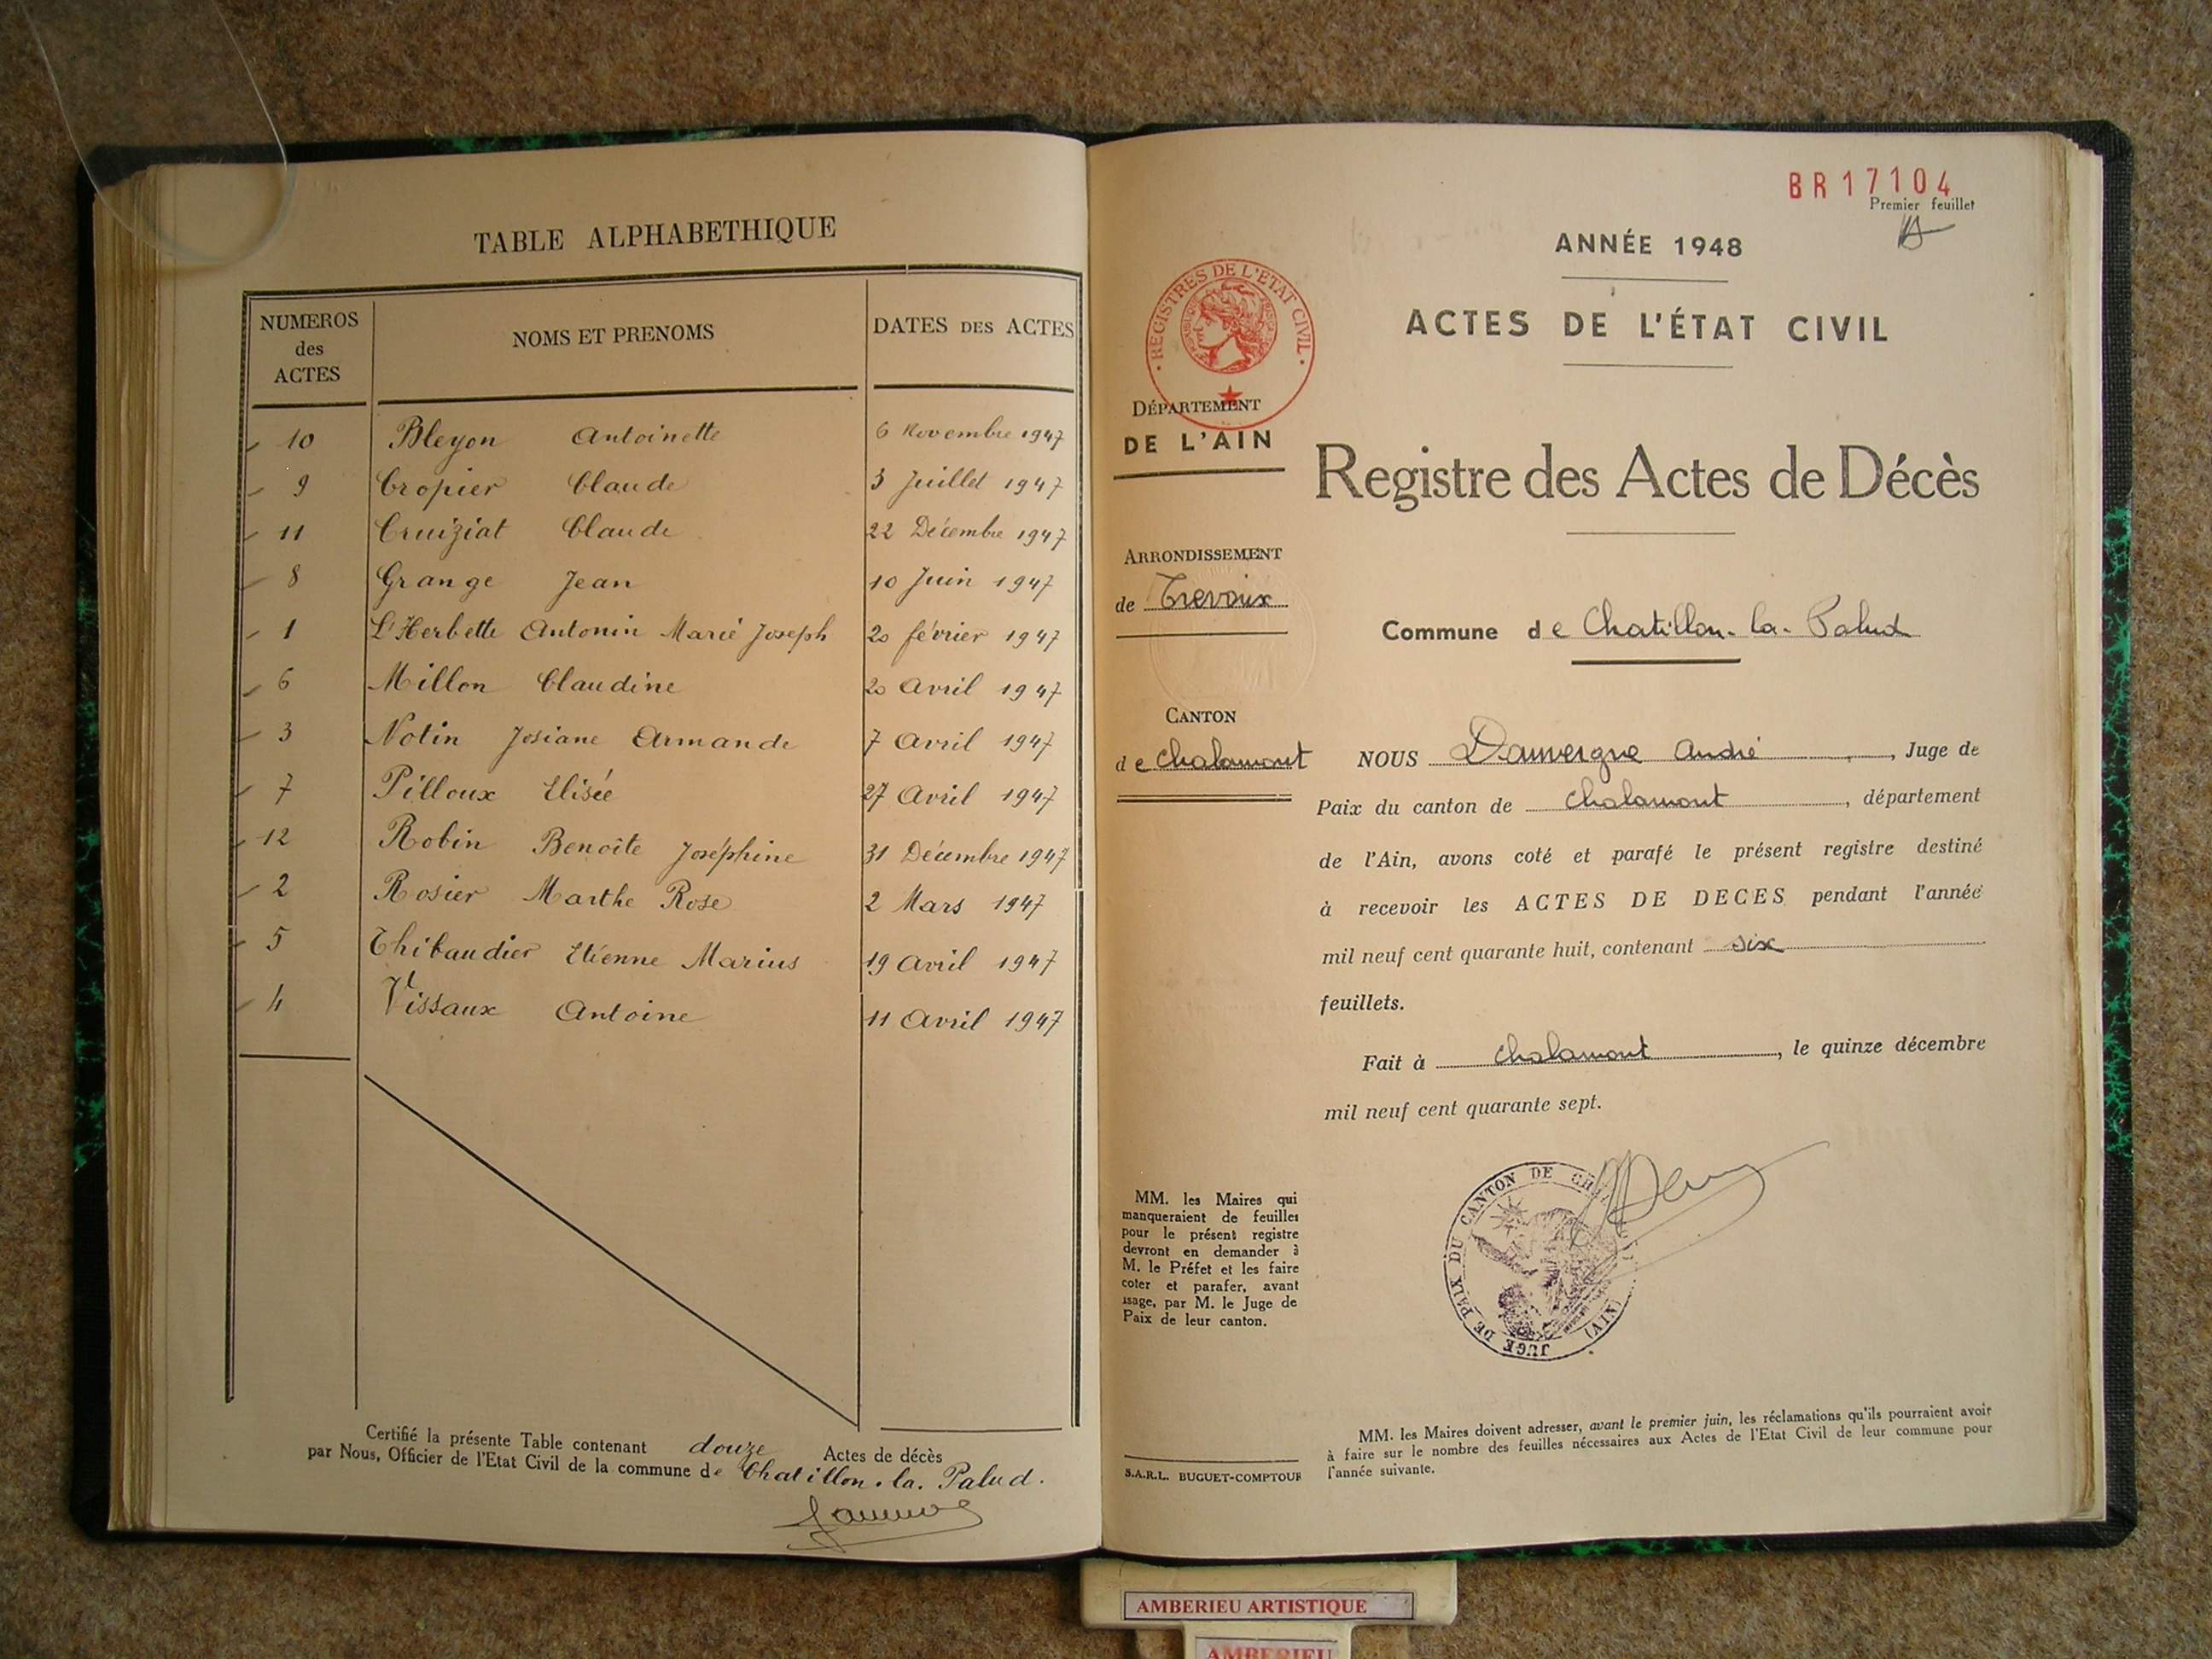 TABLE ALPHABETHIQUE
NUMEROS des ACTES NOMS ET PRENOMS DATES DES ACTES
10 Bleyon Antoinette 6 Novembre 1947
9 Cropier Claude 3 Juillet 1947
11 Cruiziat Claude 22 Décembre 1947
8 Grange Jean 10 Juin 1947
1 L'Herbette Antonin Marie Joseph 20 février 1947
6 Millon Claudine 20 Avril 1947
3 Notin Josiane Armande 7 Avril 1947
7 Pilloux Elisée 27 Avril 1947
12 Robin Benoîte Joséphine 31 Décembre 1947
2 Rosier Marthe Rose 2 Mars 1947
5 Thibaudier Etienne Marius 19 Avril 1947
4 Vissaux Antoine 11 Avril 1947
Certifié la présente Table contenant douze Actes de décès
par Nous, Officier de l'Etat Civil de la commune de Chatillon-la-Palud.
BR17104
Premier feuillet
ANNÉE 1948
ACTES DE L'ÉTAT CIVIL
REGISTRES DE L'ETAT CIVIL
DÉPARTEMENT
DE L'AIN
Registre des Actes de Décès
ARRONDISSEMENT
de Trevoux
Commune de Chatillon-la-Palud
CANTON
de Chalamont
NOUS Dauvergne André, Juge de
Paix du canton de Chalamont, département
de l'Ain, avons coté et parafé le présent registre destiné
à recevoir les ACTES DE DECES pendant l'année
mil neuf cent quarante huit, contenant six
feuillets.
Fait à Chalamont, le quinze décembre
mil neuf cent quarante sept.
JUGE DE PAIX DU CANTON DE CH (AIN)
MM. les Maires qui
manqueraient de feuilles
pour le présent registre
devront en demander à
M. le Préfet et les faire
coter et parafer, avant
usage, par M. le Juge de
Paix de leur canton.
S.A.R.L. BUGUET-COMPTOUR
MM. les Maires doivent adresser, avant le premier juin, les réclamations qu'ils pourraient avoir
à faire sur le nombre des feuilles nécessaires aux Actes de l'Etat Civil de leur commune pour
l'année suivante.
AMBERIEU ARTISTIQUE
AMBERIEU